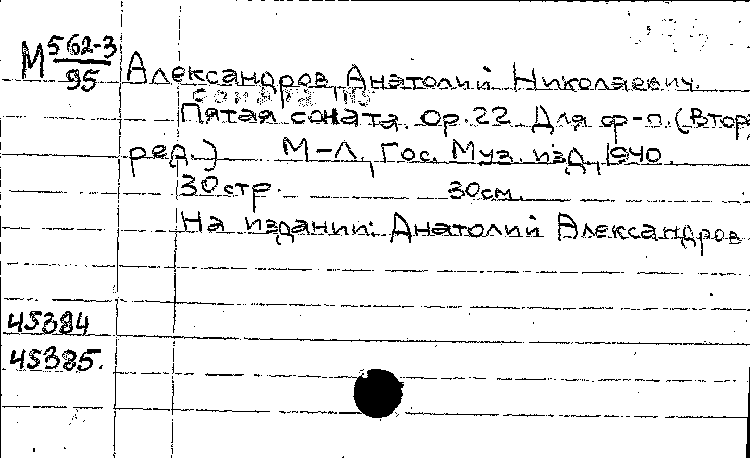 М 562-3/95
Александров, Анатолий Николаевич.
Соната №5
Пятая соната. Op. 22. Для ф-п. (Втор.
ред.) М-Л, Гос. Муз. изд., 1940.
30 стр. 30см.
На издании: Анатолий Александров
45384
45385.